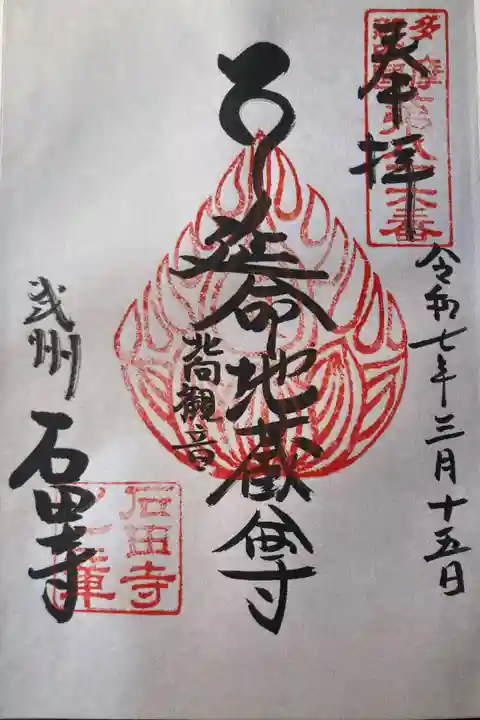 奉拝
令和七年三月十五日
延命地蔵尊
北向観音
武州
石田寺
石田寺